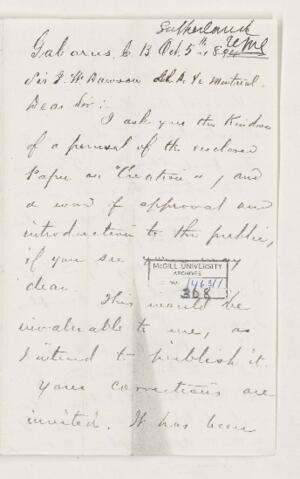 Sutherland
Gabarus, C. B. Oct. 5th
Sir J. W. Dawson Montreal.
Dear Sir:
I ask you the kindness
of a perusal of the enclosed
Paper on "Creation", and
a word of approval and
introduction to the public,
if you see your way
clear.
McGILL UNIVERSITY
ARCHIVES
308
This would be
invaluable to me, as
I intend to publish it.
Your corrections are
invited. It has been